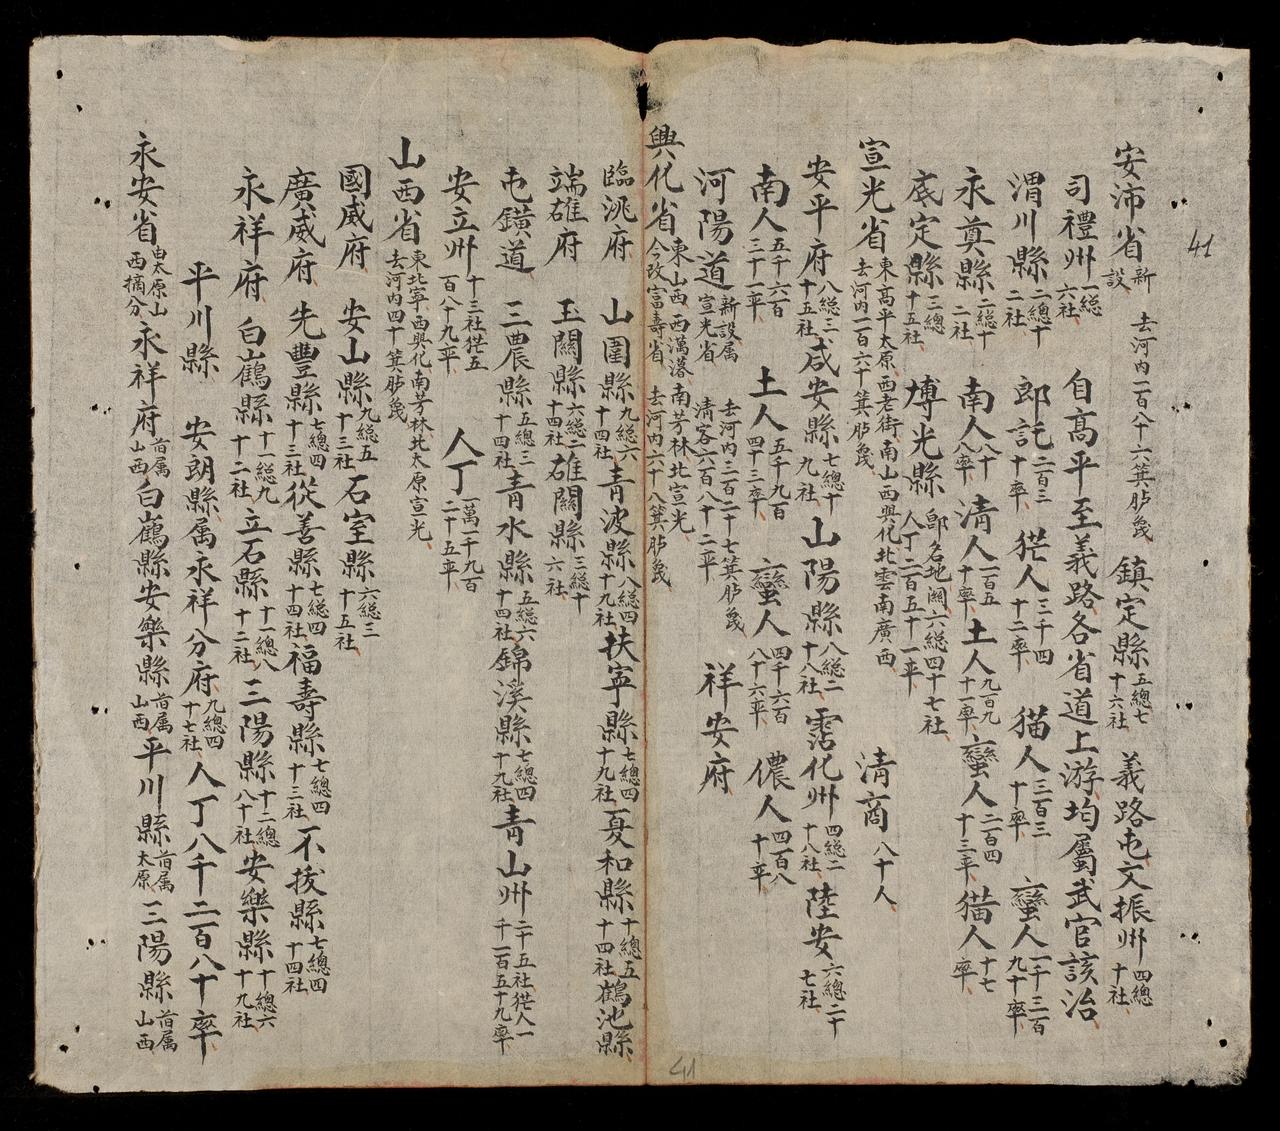 41
安沛省 新設 去河内一百八十六箕胪幾 鎮定縣 五總七十六社 義路屯文振州 四總十社
司禮州 一総六社 自高平至義路各省道上游均屬武官該治
渭川縣 二總十二社 郎記 二百三十率 㹥人 三千四十二率 猫人 三百三十率 蠻人 一千三百九十率
永奠縣 二總十二社 南人 八十八率 清人 一百五十率 土人 九百九十一率 蠻人 二百四十三率 猫人 十七率
底定縣 三總十五社 博光縣 即名地闊六総四十七社人丁二百五十一率
宣光省 東高平太原西老街南山西興化北雲南廣西去河内一百六十箕胪幾 清商 八十人
安平府 八総三十五社 咸安縣 七總十九社 山陽縣 八総二十八社 霑化州 四総二十八社 陸安 六總二十七社
南人 五千六百三十一率 土人 五千九百四十三率 蠻人 四千六百八十六率 儂人 四百八十率
河陽道 新設属宣光省 去河内三百二十七箕胪幾清客六百八十二率 祥安府
興化省 東山西西萬落南芳林北宣光今改富壽省去河内六十八箕胪幾
臨洮府 山圍縣 九総六十四社 青波縣 八総四十九社 扶寧縣 七總四十九社 夏和縣 十總五十四社 鶴池縣
端雄府 玉關縣 六総二十四社 雄關縣 三総十六社
屯鐄道 三農縣 五總三十四社 青水縣 五總六十四社 錦溪縣 七總四十九社 青山州 二十五社㹥人一千一百五十九率
安立州 十三社㹥五百八十九率 人丁 一萬一千九百二十五率
山西省 東北寧西興化南芳林北太原宣光去河内四十箕胪幾
國威府 安山縣 九総五十三社 石室縣 六総三十五社
廣威府 先豐縣 七總四十三社 從善縣 七総四十四社 福壽縣 七總四十三社 不拔縣 七總四十四社
永祥府 白鶴縣 十一総九十二社 立石縣 十一總八十二社 三陽縣 十二總八十社 安樂縣 十總六十九社
平川縣 安朗縣属永祥分府 九總四十七社 人丁八千二百八十率
永安省 由太原山西摘分 永祥府 前属山西 白鶴縣安樂縣 前属山西 平川縣 前属太原 三陽縣 前属山西
41